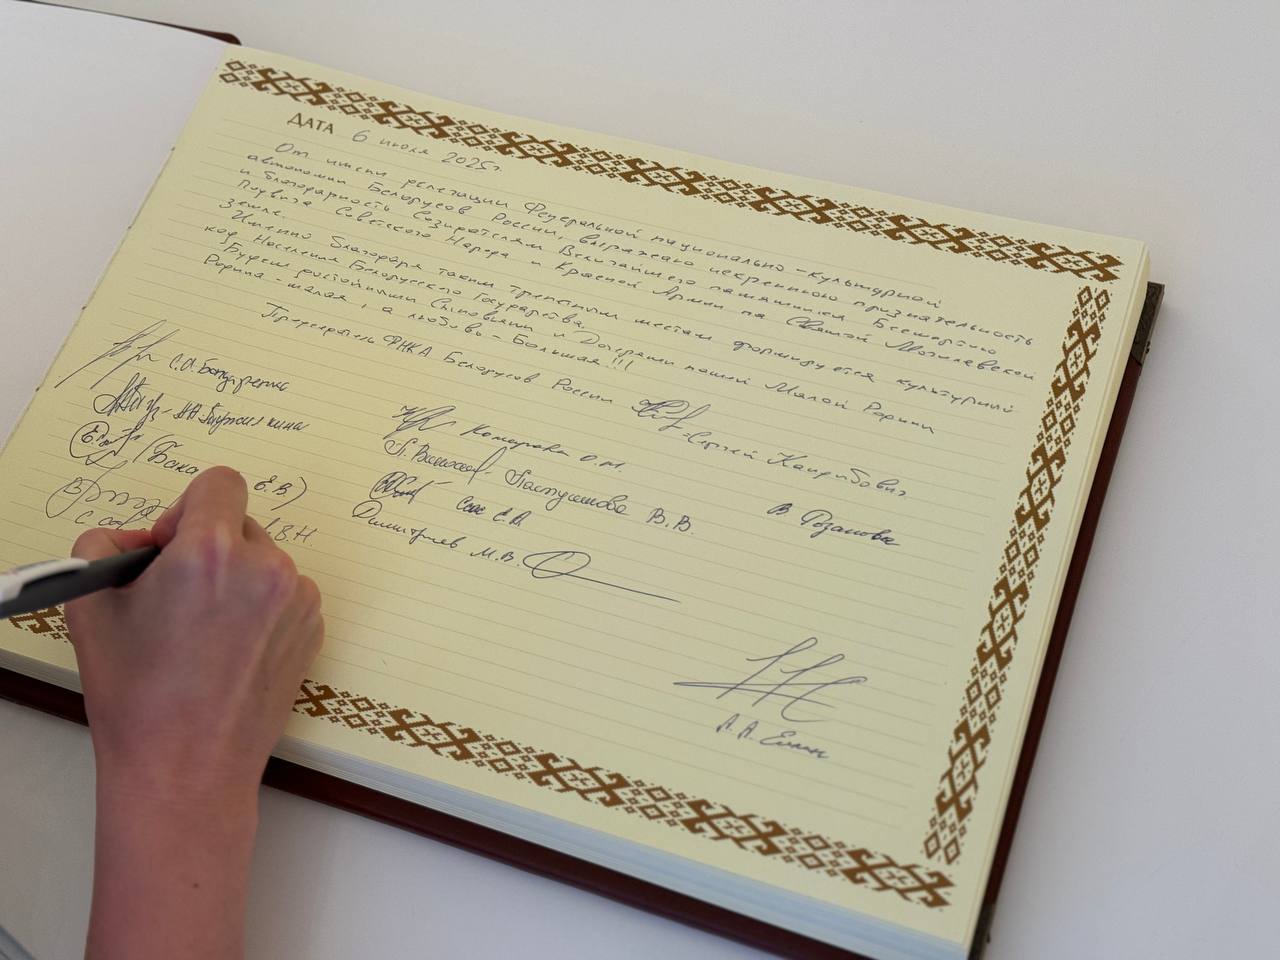 ДАТА 6 июля 2025г.
От имени делегации Федеральной национально-культурной
автономии Белорусов России, выражаю искреннюю признательность
и благодарность Созидателям Величайшего памятника Бессмертию
Подвига Советского Народа и Красной Армии на Святой Могилевской
земле.
Именно благодаря таким трепетным местам формируется культурный
код Населения Белорусского Государства.
Будем достойными Сыновьями и Дочерями нашей Малой Родины
Родина - малая, а любовь - Большая!!!
Председатель ФНКА Белорусов России
Сергей Кандыбович
С.А. Бондаренко
Комарова О.М.
В. Розанова
Пастушенкова В.В.
Е.В.)
Саас С.А
В.Н.
Дмитриев М.В.
А.А. Елкин